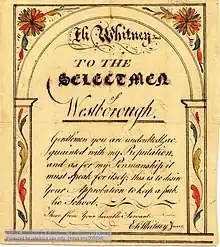 Eli Whitney
TO THE
SELECTMEN
of
Westborough,
Gentlemen you are undoubtedly ac
quainted with my Reputation,
and as for my Penmanship it
must speak for itself; this is to desire
Your Approbation to keep a pub
lic School.
from Your humble Servant
Eli Whitney Junr.